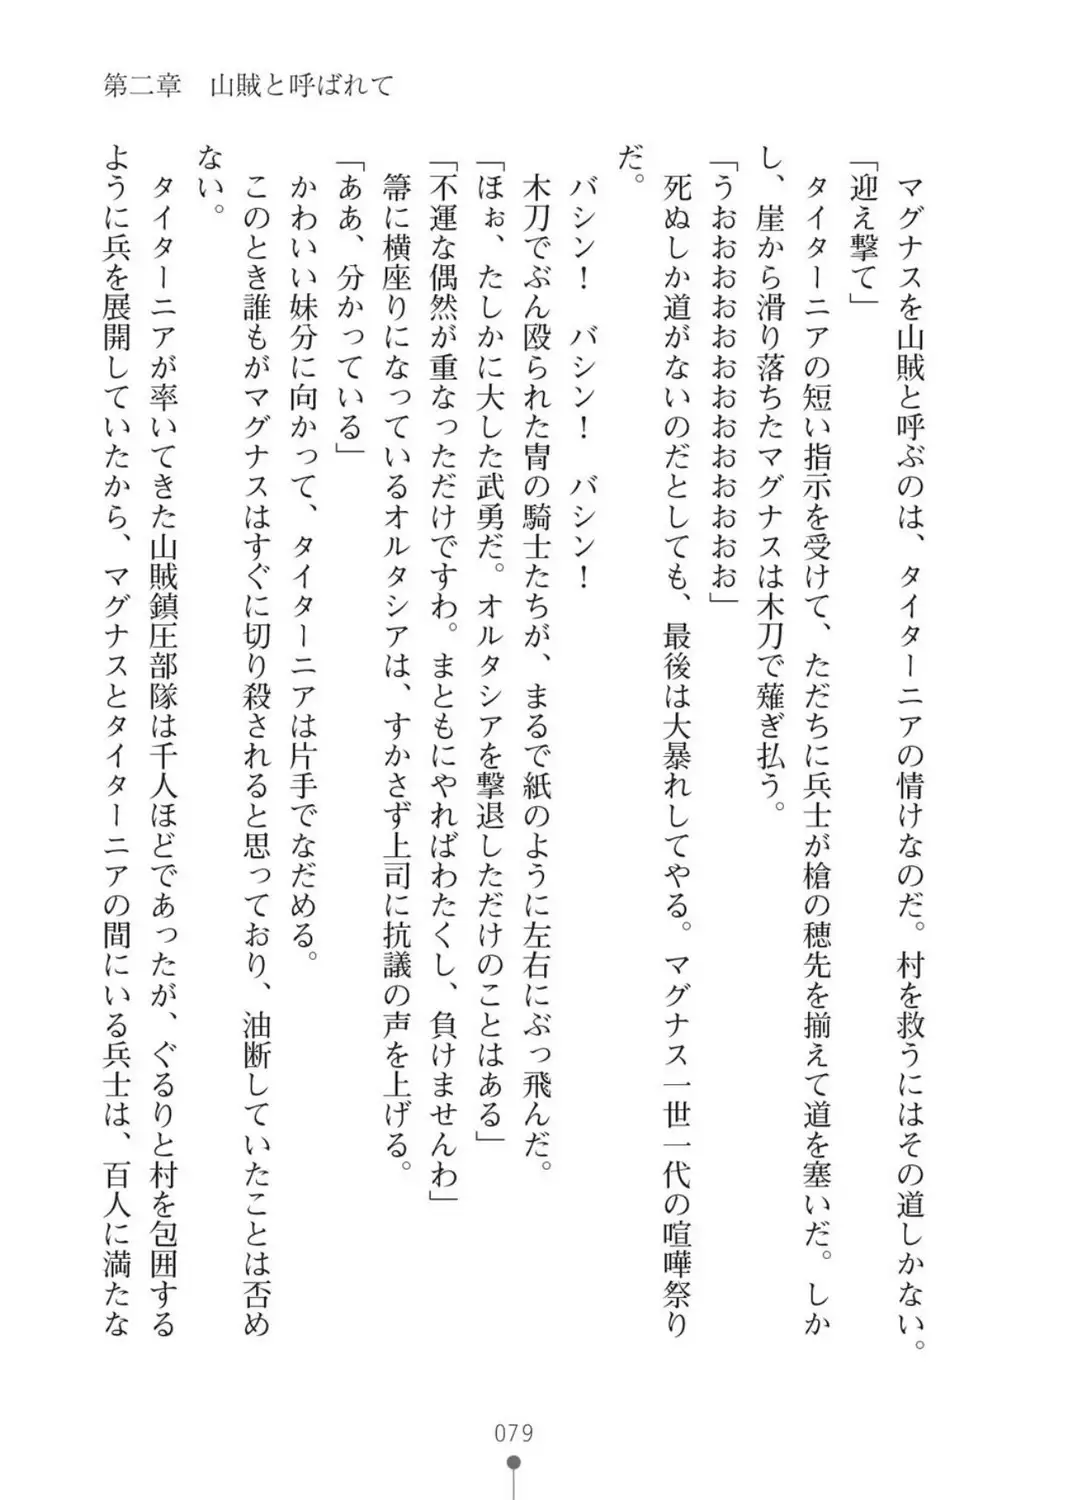 第二章　山賊と呼ばれて
　マグナスを山賊と呼ぶのは、タイターニアの情けなのだ。村を救うにはその道しかない。
「迎え撃て」
　タイターニアの短い指示を受けて、ただちに兵士が槍の穂先を揃えて道を塞いだ。しか
し、崖から滑り落ちたマグナスは木刀で薙ぎ払う。
「うおおおおおおおおおおおおお」
　死ぬしか道がないのだとしても、最後は大暴れしてやる。マグナス一世一代の喧嘩祭り
だ。
　バシン！　バシン！　バシン！
　木刀でぶん殴られた冑の騎士たちが、まるで紙のように左右にぶっ飛んだ。
「ほぉ、たしかに大した武勇だ。オルタシアを撃退しただけのことはある」
「不運な偶然が重なっただけですわ。まともにやればわたくし、負けませんわ」
　箒に横座りになっているオルタシアは、すかさず上司に抗議の声を上げる。
「ああ、分かっている」
　かわいい妹分に向かって、タイターニアは片手でなだめる。
　このとき誰もがマグナスはすぐに切り殺されると思っており、油断していたことは否め
ない。
　タイターニアが率いてきた山賊鎮圧部隊は千人ほどであったが、ぐるりと村を包囲する
ように兵を展開していたから、マグナスとタイターニアの間にいる兵士は、百人に満たな
079